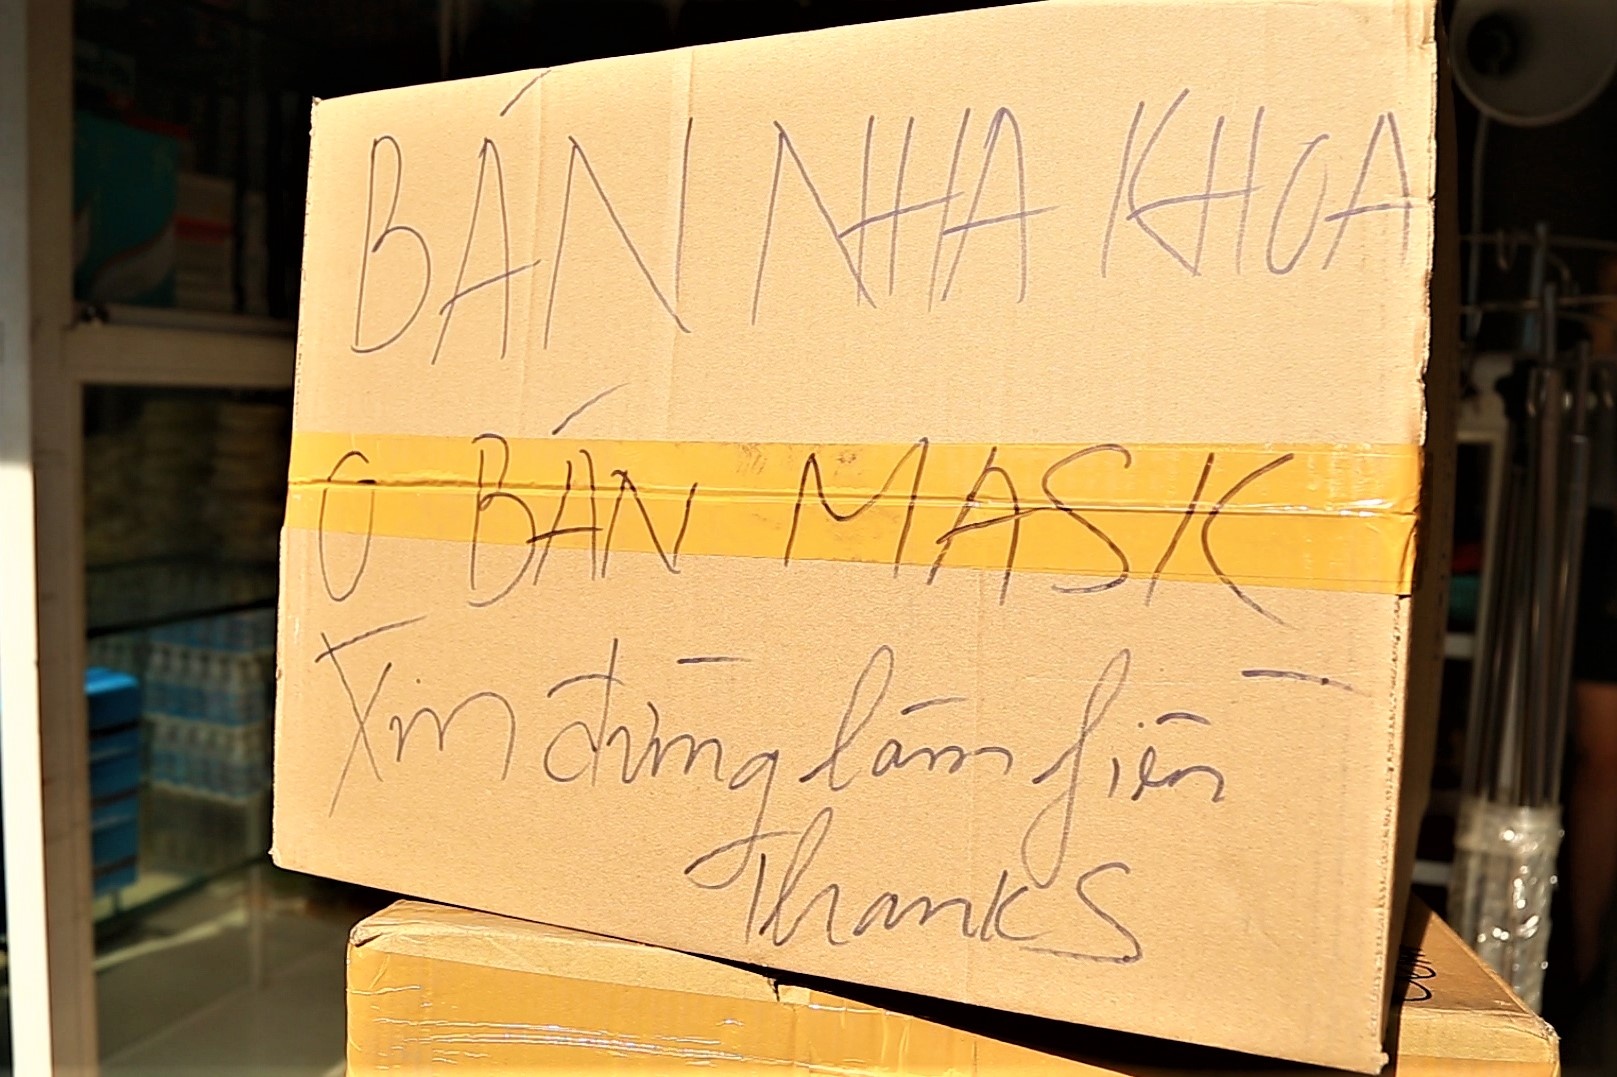 BÁN NHA KHOA
0 BÁN MASK
Xin đừng làm fiền
Thanks